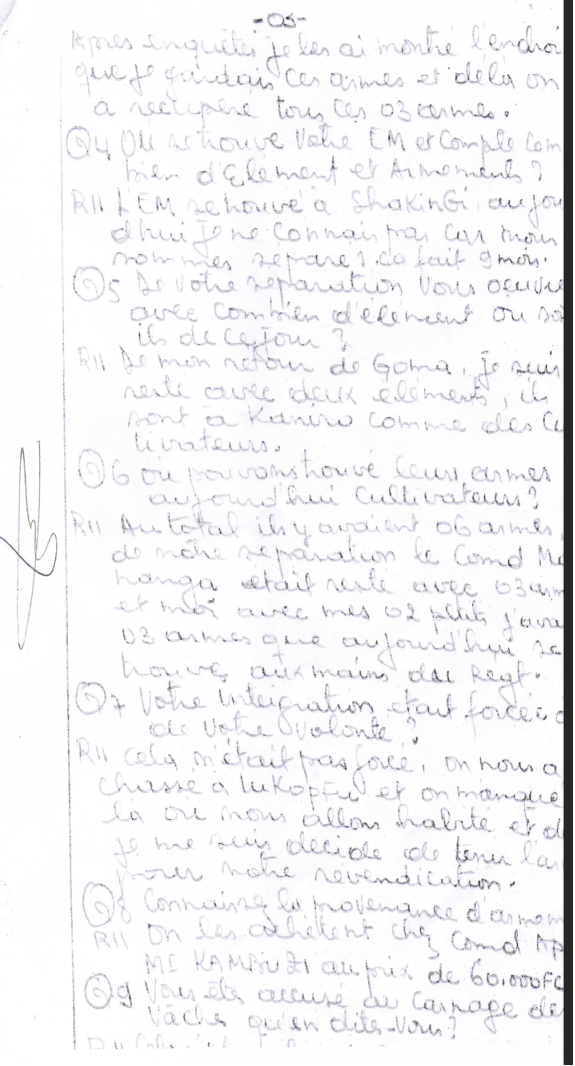 -03-
Après enquêtes je les ai montré l'endroi
que je gardais ces armes et delà on
a recipère tous ces 03 armes.
Q4 Où se trouve Votre EM et Comple Com
bien d'Element et Armements?
R// L'EM se trouve à ShakinGi, aujou
d'hui je ne connais pas car nous
sommes separes ça fait 9 mois.
Q5 De votre separation Vous oeuvre
avec combien d'element ou so
ils de ce jour?
R// De mon retour de Goma, je suis
reste avec deux elements, ils
sont à Kaniro comme des Cu
ltivateurs.
Q6 où pouvons trouvé leurs armes
aujourd'hui cultivateurs?
R// Au total ils y avaient 06 armes,
de notre separation le Comd
nanga était reste avec 03 arm
et moi avec mes 02 petits j'ava
03 armes que aujourd'hui se
trouve, aux mains du Regt.
Q7 Votre integration etait force
de votre Volonte?
R// cela n'était pas force, on nous a
chassé à luKopfu et on manque
là où nous allons habité et d
je me suis decide de tenir l'a
pour notre revendication.
Q8 Connaisse la provenance d'armem
R// On les achètent chez Comd
MI KAMBUZI au prix de 60.000FC
Q9 Vous êtes accusé au Carnage de
Vâches qu'en dites-Vous?